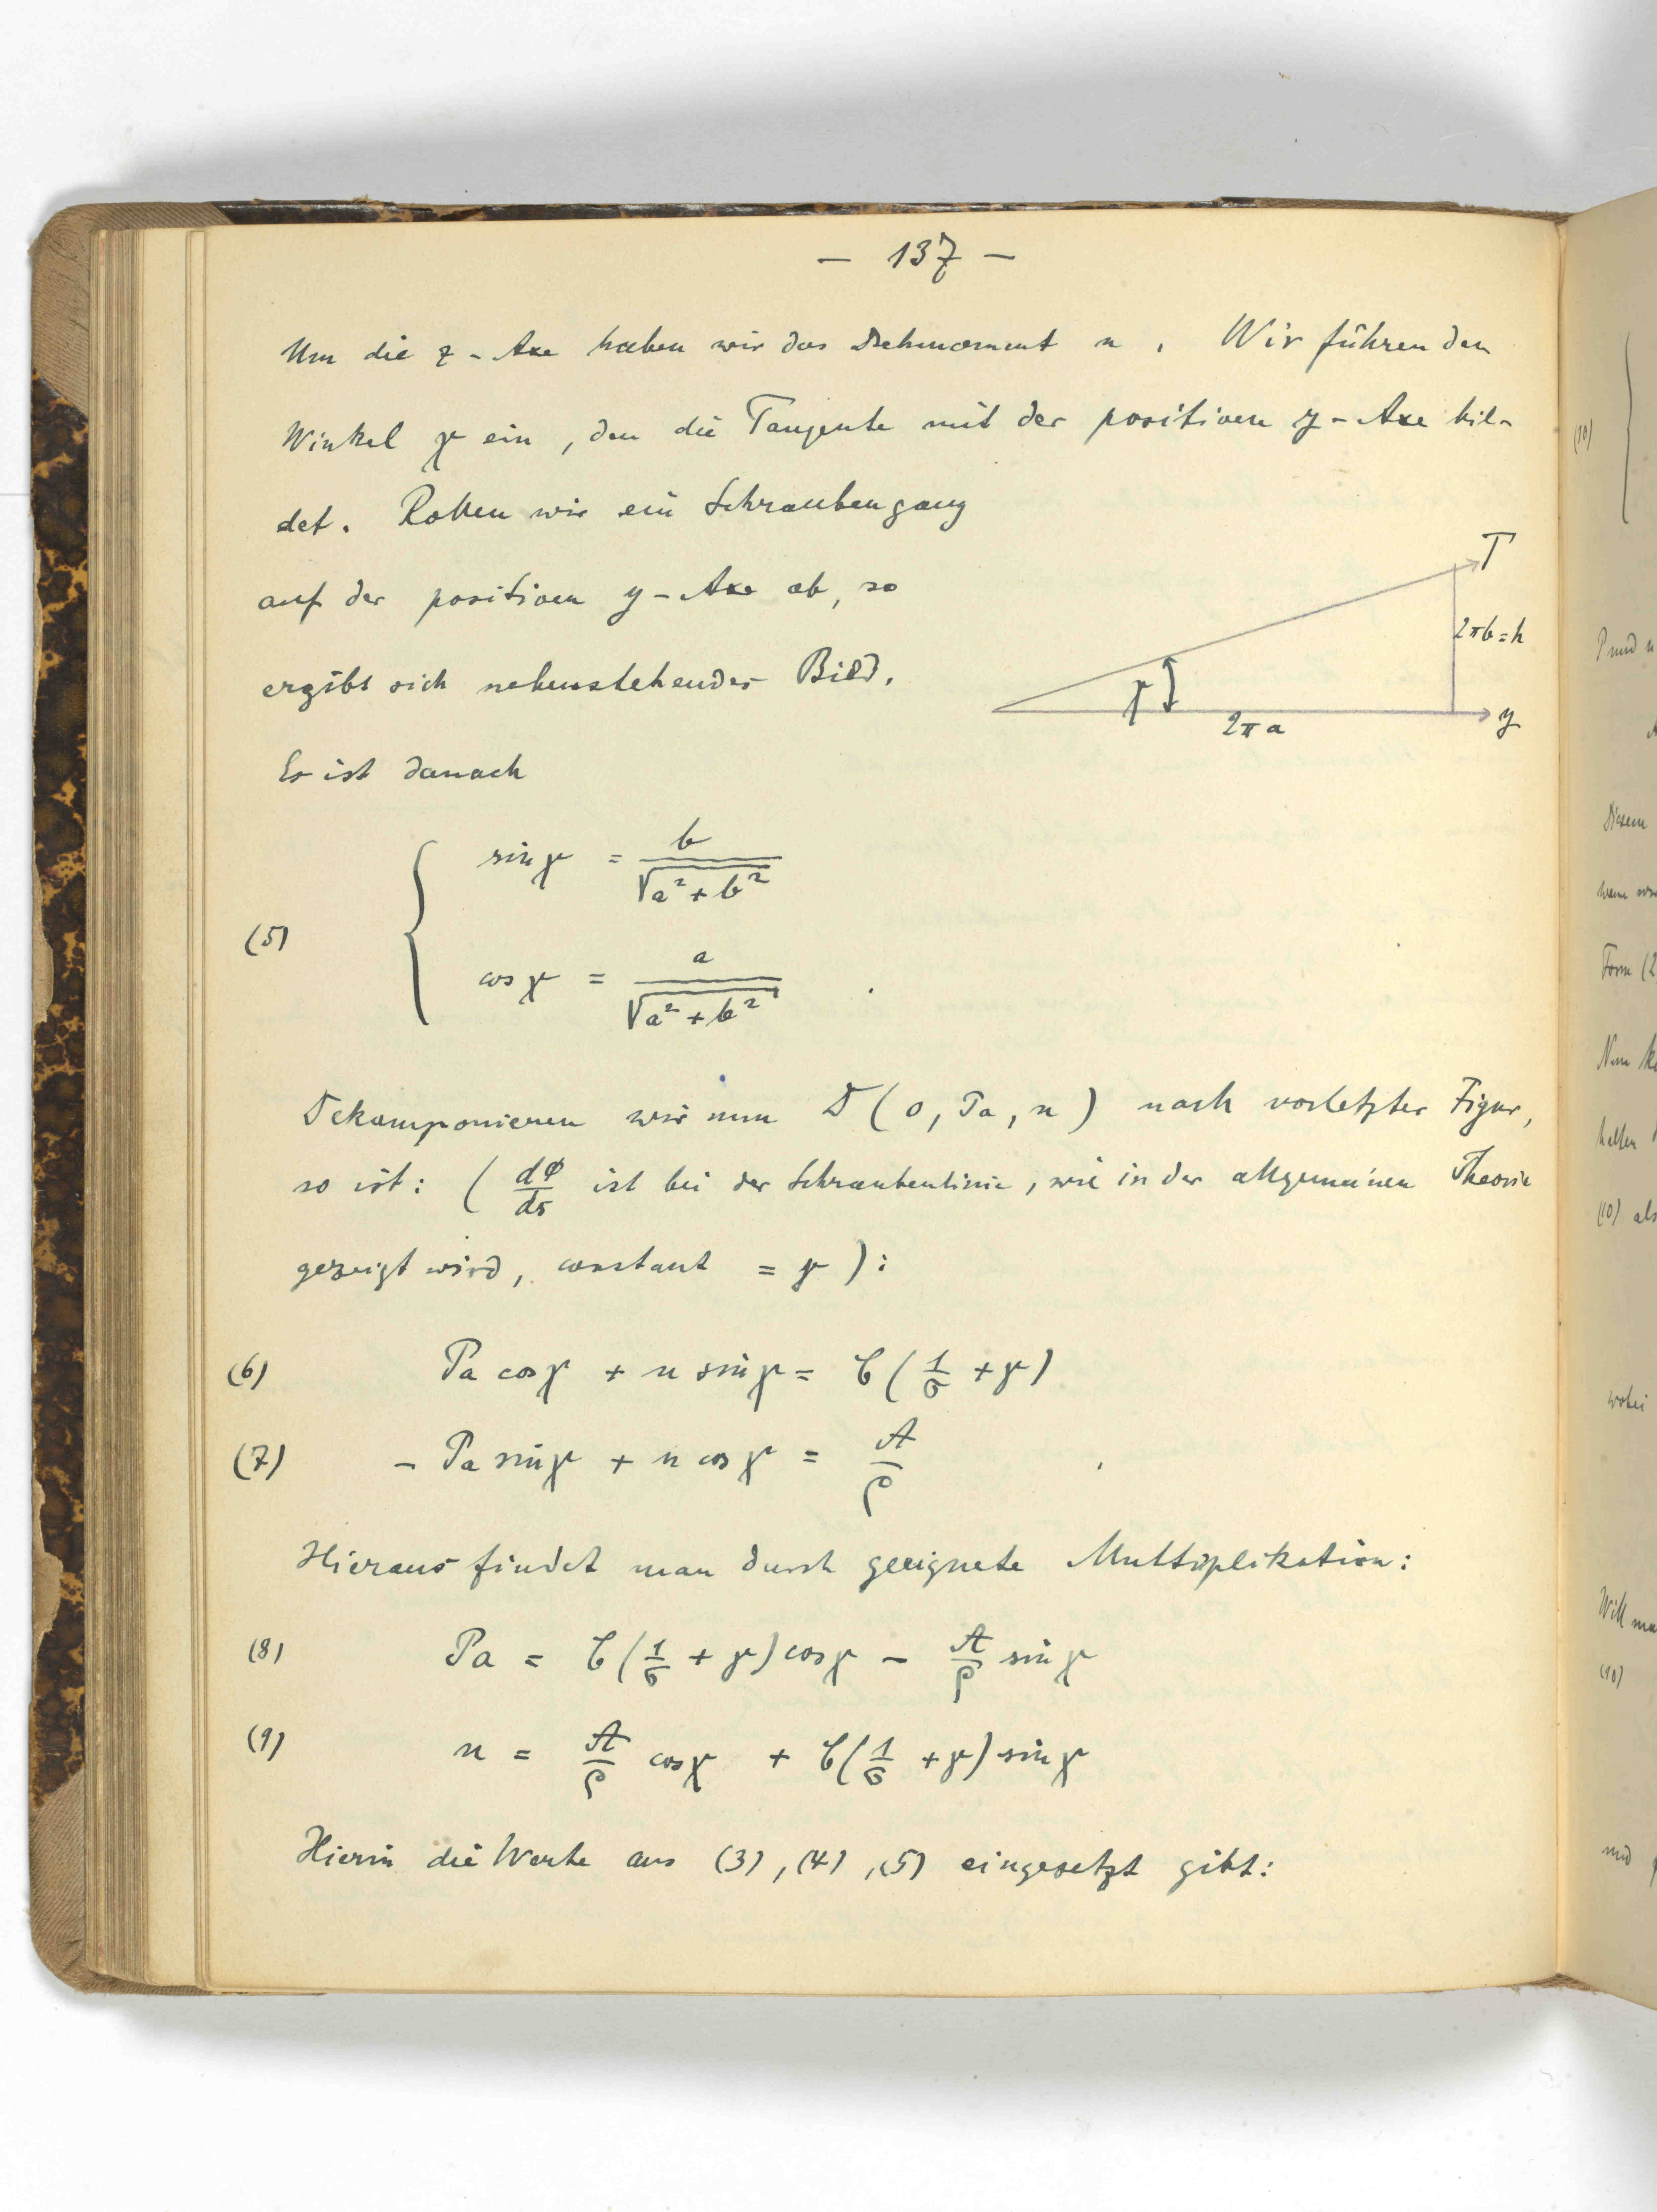 – 137 –
Um die z-Axe haben wir das Drehmoment n. Wir führen den
Winkel γ ein, den die Tangente mit der positiven y-Axe bil-
det. Rollen wir ein Schraubengang
auf der positiven y-Axe ab, so
ergibt sich nebenstehendes Bild.
T
2πb=h
γ
2πa
y
Es ist danach
(5) { sin γ = b / √(a² + b²)
cos γ = a / √(a² + b²) .
Dekomponieren wir nun D (0, Pa, n) nach vorletzter Figur,
so ist: ( dφ/ds ist bei der Schraubenlinie, wie in der allgemeinen Theorie
gezeigt wird, constant = γ ):
(6) Pa cos γ + n sin γ = C ( 1/σ + γ )
(7) – Pa sin γ + n cos γ = A/ρ .
Hieraus findet man durch geeignete Multiplikation:
(8) Pa = C ( 1/σ + γ ) cos γ – A/ρ sin γ
(9) n = A/ρ cos γ + C ( 1/σ + γ ) sin γ
Hierin die Werte aus (3), (4), (5) eingesetzt gibt:
(10)
P und
Diesem
Form (2
Nun
(10) als
wobei
Will
(10)
und